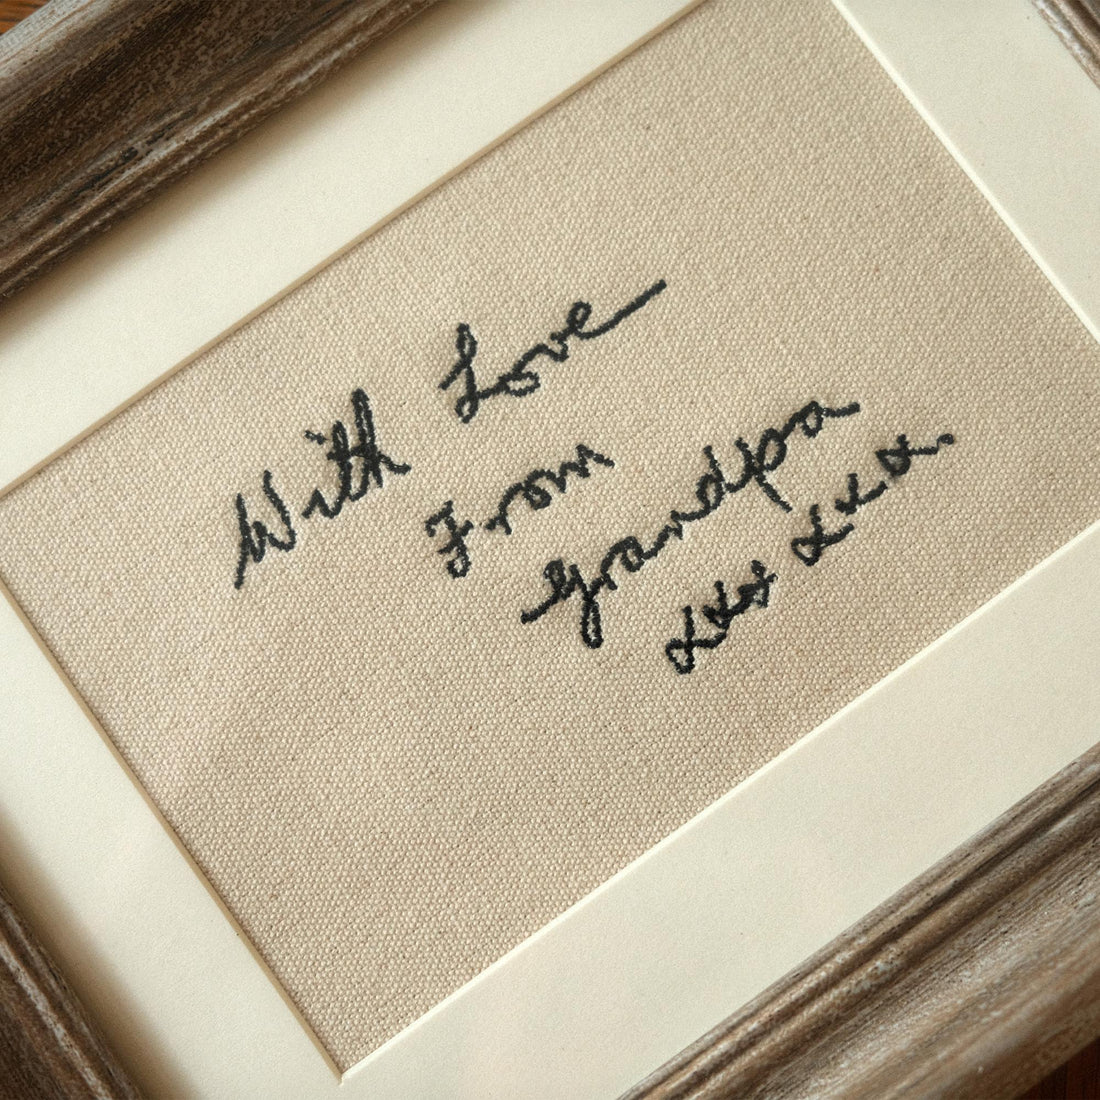 With Love
From
Grandpa
xxx xxx